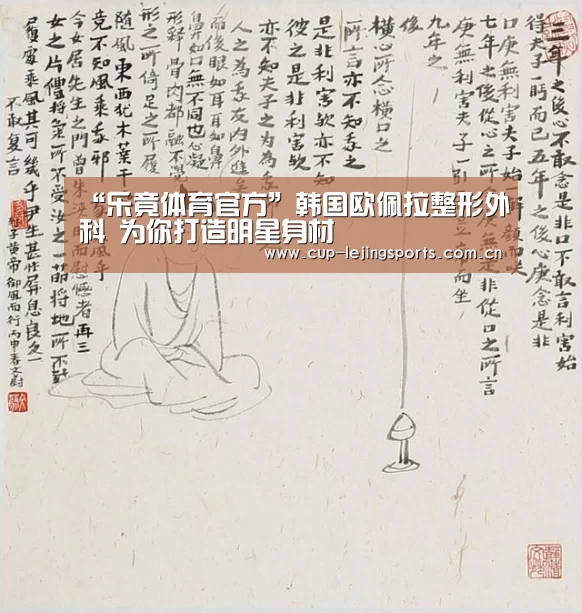 三年之後心不敢念是非口不敢言利害始
得夫子一眄而已五年之後心庚念是非
口庚無利害夫子始一解顏而笑
七年之後從心之所 無是非從口之所言
庚無利害夫子始一引 而坐
九年之
後
橫心所念橫口之
所言亦不知我之
是非利害歟亦不知
彼之是非利害歟
亦不知夫子之為我
人之為我友內外進
而後眼如耳耳如鼻
鼻如口無不同也心凝
形釋骨肉都融不覺
形之所倚足之所履
隨風東西猶木葉干
竟不知風乘我邪 風乎
今女居先生之門曾 浹時而 憾者再三
女之片體將氣所不受汝之一節將地所不載
履虛乘風其可幾乎尹生甚怍屏息良久
不敢复言
子黄帝 御風而行丙申春文尉
“乐竞体育官方”韩国欧佩拉整形外
科 为你打造明星身材
www.cup-lejingsports.com.cn